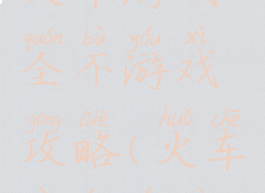 quán bù yóu xì
全不游戏
gōng lüè huǒ chē
攻略(火车